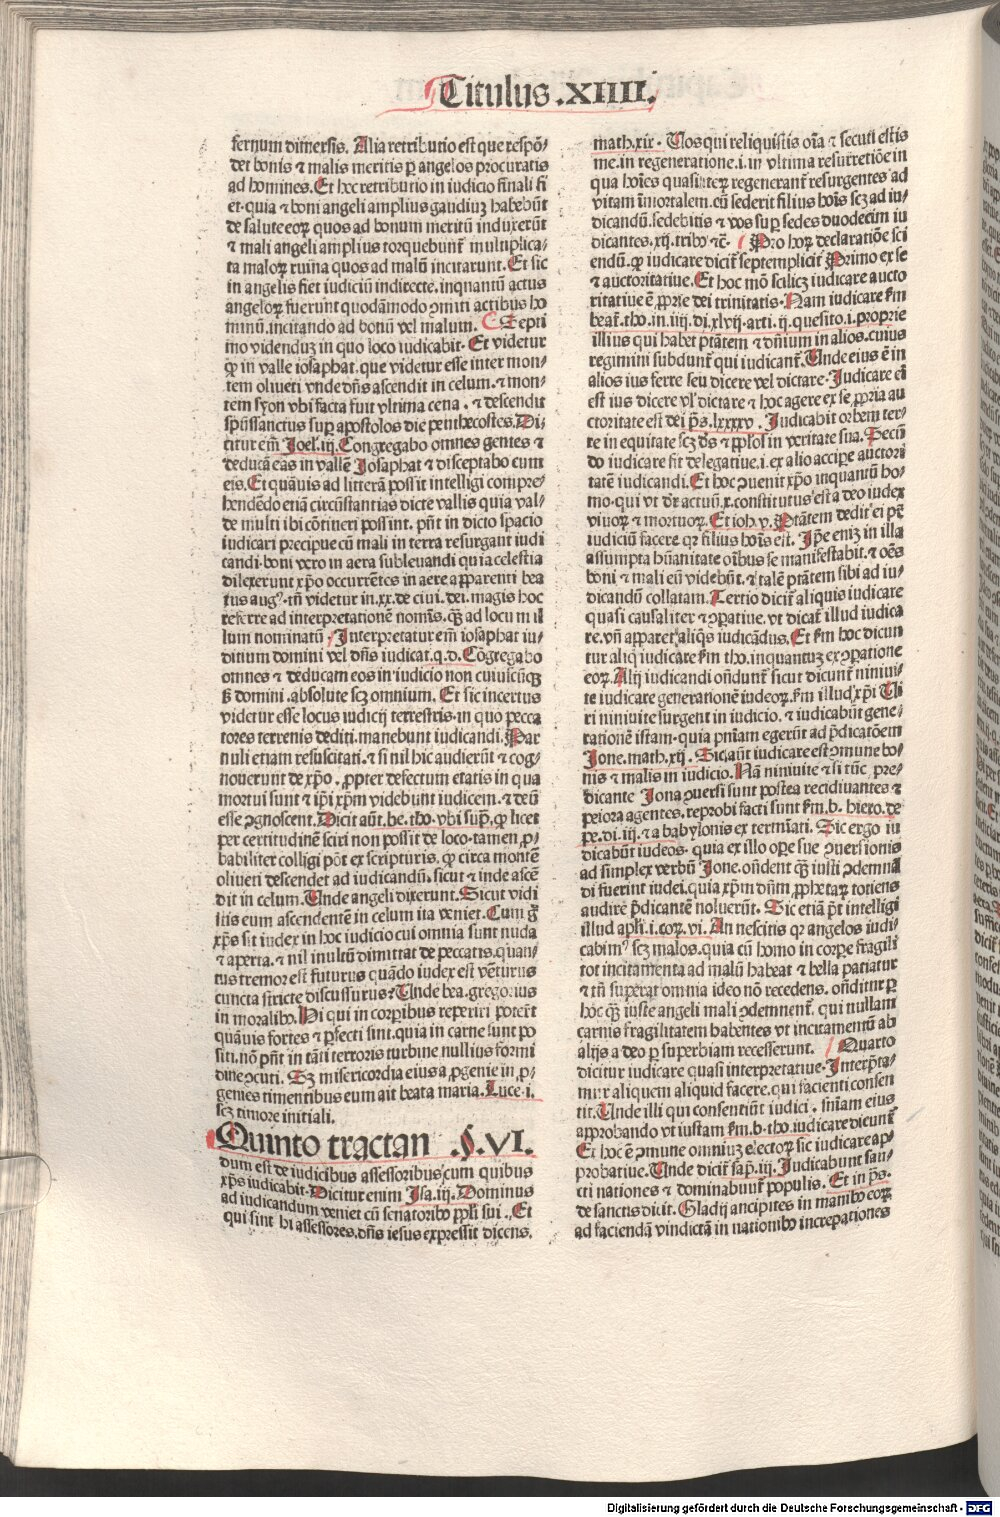 Titulus .XIIII.
fernum dimersis. Alia retributio est que respō⸗
det bonis ⁊ malis meritis ꝑ angelos procuratis
ad homines. Et hec retributio in iudicio finali fi
et. quia ⁊ boni angeli amplius gaudiuȝ habebūt
de salute eoꝝ quos ad bonum meritū induxerūt
⁊ mali angeli amplius torquebunť multiplica⸗
ta maloꝝ ruina quos ad malū incitarunt. Et sic
in angelis fiet iudiciū indirecte. inquantū actus
angeloꝝ fuerunt quodāmodo ꝯmiti actibus ho
minū. incitando ad bonū vel malum. Septi
mo videnduȝ in quo loco iudicabit. Et videtur
ꝙ in valle iosaphat. que videtur esse inter mon⸗
tem oliueti vnde dn̄s ascendit in celum. ⁊ mon⸗
tem syon vbi facta fuit vltima cena . ⁊ descendit
spūssanctus suꝑ apostolos die penthecostes. Di⸗
citur em̄ Joel. iij. Congregabo omnes gentes ⁊
deducā eas in vallē Josaphat ⁊ disceptabo cum
eis. Et quāuis ad litterā possit intelligi compre⸗
hendēdo etiā circūstantias dicte vallis quia val⸗
de multi ibi cōtineri possint. pn̄t in dicto spacio
iudicari precipue cū mali in terra resurgant iudi
candi. boni vero in aera subleuandi quia celestia
dilexerunt xp̄o occurrētes in aere apparenti bea
tus augꝰ. tn̄ videtur in. xx. de ciui. dei. magis hoc
referre ad interpretationē nomīs. qȝ̄ ad locum il
lum nominatū Interpretatur em̄ iosaphat iu⸗
ditium domini vel dn̄s iudicat. q. d. Cōgregabo
omnes ⁊ deducam eos in iudicio non cuiuscūqȝ
ß domini. absolute scȝ omnium. Et sic incertus
videtur esse locus iudicij terrestris. in quo pecca
tores terrenis dediti. manebunt iudicandi. Par
nuli etiam resuscitati. ⁊ si nil hic audierūt ⁊ cog⸗
nouerunt de xp̄o. ꝓpter defectum etatis in qua
mortui sunt ⁊ ip̄i xp̄m videbunt iudicem. ⁊ deū
esse ꝯgnoscent. Dicit aūt. be. tho. vbi suꝑ̄, ꝙ licet
per certitudinē sciri non possit de loco. tamen ꝓ⸗
babiliter colligi pōt ex scripturis. ꝙ circa montē
oliueti descendet ad iudicandū. sicut ⁊ inde ascē
dit in celum. Unde angeli dixerunt. Sicut vidi
stis eum ascendentē in celum ita veniet. Cum g̊
xp̄s sit iudex in hoc iudicio cui omnia sunt nuda
⁊ aperta. ⁊ nil inultū dimittat de peccatis. quan⸗
tus tremor est futurus quādo iudex est vēturus
cuncta stricte discussurus? Unde bea. gregorius
in moralibꝰ. Hi qui in corꝑibus reperiri poterūt
quāuis fortes ⁊ ꝑfecti sint. quia in carne sunt po
siti. nō pn̄t in tāti terroris turbine nullius formi
dine ꝯcuti. Sȝ misericordia eius a ꝓgenie in ꝓ⸗
genies timentibus eum ait beata maria. Luce. i.
scȝ timore initiali.
Quinto tractan .§.VI.
dum est de iudicibus assessoribus cum quibus
xp̄s iudicabit. Dicitur enim Isa. iij. Dominus
ad iudicandum veniet cū senatoribꝰ pp̄li sui . Et
qui sint hi assessores. dn̄s iesus expressit dicens.
math. xix. Uos qui reliquistis oīa ⁊ secuti estis
me. in regeneratione. i. in vltima resurrectiōe in
qua hoīes quasi iteꝝ regenerant̄ resurgentes ad
vitam īmortalem. cū sederit filius hoīs scȝ ad iu⸗
dicandū. sedebitis ⁊ vos suꝑ sedes duodecim iu
dicantes. xij. tribꝰ ⁊c̄. Pro hoꝝ declaratiōe sci
endū. ꝙ iudicare dicit̄ septempliciter Primo ex se
⁊ auctoritatiue. Et hoc mō scilicȝ iudicare aucto
ritatiue ē ꝓprie dei trinitatis. Nam iudicare s̄m
beat̄. tho. in. iiij. di. xlvij. arti. ij. quesito. i. proprie
illius qui habet ptātem ⁊ dn̄ium in alios. cuius
regimini subdunt̄ qui iudicant̄. Unde eius ē in
alios ius ferre seu dicere vel dictare. Iudicare em̄
est ius dicere vl̓ dictare ⁊ hoc agere ex se ꝓpria au
ctoritate est dei p̄s. lxxxxv . Iudicabit orbem ter⸗
re in equitate scȝ ds̄ ⁊ pp̄los in veritate sua. Secū
do iudicare fit delegatiue. i. ex alio accipe auctori
tatē iudicandi. Et hoc ꝯuenit xp̄o inquantū ho⸗
mo. qui vt dr̄ actuū. x. constitutus est a deo iudex
viuoꝝ ⁊ mortuoꝝ. Et ioh. v. Ptātem dedit ei pr̄
iudiciū facere qꝛ filius hoīs est. Ip̄e eniȝ in illa
assumpta hūanitate oībus se manifestabit. ⁊ oēs
boni ⁊ mali eū videbūt. ⁊ talē ptātem sibi ad iu⸗
dicandū collatam. Tertio dicit̄ aliquis iudicare
quasi causaliter ⁊ ꝯꝑatiue. vt dicat̄ illud iudica
re. vn̄ apparet aliqs iudicādus. Et s̄m hoc dicun
tur aliq̄ iudicare s̄m tho. inquantuȝ ex ꝯꝑatione
eoꝝ. Alij iudicandi on̄dunt̄ sicut dicunt̄ niniui⸗
te iudicare generationē iudeoꝝ. s̄m illud xp̄i Ui
ri niniuite surgent in iudicio. ⁊ iudicabūt gene⸗
rationē istam. quia pn̄iam egerūt ad p̄dicatōem
Ione. math. xij. Sic aūt iudicare est ꝯmune bo⸗
nis ⁊ malis in iudicio. Nā niniuite ⁊ si tūc pre⸗
dicante Iona ꝯuersi sunt postea recidiuantes ⁊
peiora agentes. reprobi facti sunt s̄m. b. hiero. de
pe. di. iij. ⁊ a babylonis ex termīati. Sic ergo iu
dicabūt iudeos. quia ex illo oꝑe sue ꝯuersionis
ad simplex verbū Ione. on̄dent qȝ iusti ꝯdemnā
di fuerint iudei. quia xp̄m dn̄m. ꝓphetaꝝ totiens
audire p̄dicantē noluerūt. Sic etiā pōt intelligi
illud apl̓i. i. coꝝ. vi. An nescitis qꝛ angelos iudi⸗
cabimꝰ scȝ malos. quia cū homo in corꝑe fragili
tot incitamenta ad malū habeat ⁊ bella patiatur
⁊ tn̄ superat omnia ideo nō recedens. on̄ditur ꝑ
hoc qȝ iuste angeli mali ꝯdemnent̄. qui nullam
carnis fragilitatem habentes vt incitamentū ab
alijs a deo ꝑ superbiam recesserunt. Quarto
dicitur iudicare quasi interpretatiue. Interp̄ta⸗
mur aliquem aliquid facere. qui facienti consen
tit. Unde illi qui consentiūt iudici. sn̄iam eius
approbando vt iustam s̄m. b. tho. iudicare dicunt̄
Et hoc ē ꝯmune omniuȝ electoꝝ sic iudicare ap⸗
probatiue. Unde dicit̄ sap̄. iij. Iudicabunt san⸗
cti nationes ⁊ dominabunt̄ populis. Et in p̄s.
de sanctis dicit. Gladij ancipites in manibꝰ eoꝝ
ad faciendā vindictā in nationibꝰ increpationes
Digitalisierung gefördert durch die Deutsche Forschungsgemeinschaft - DFG